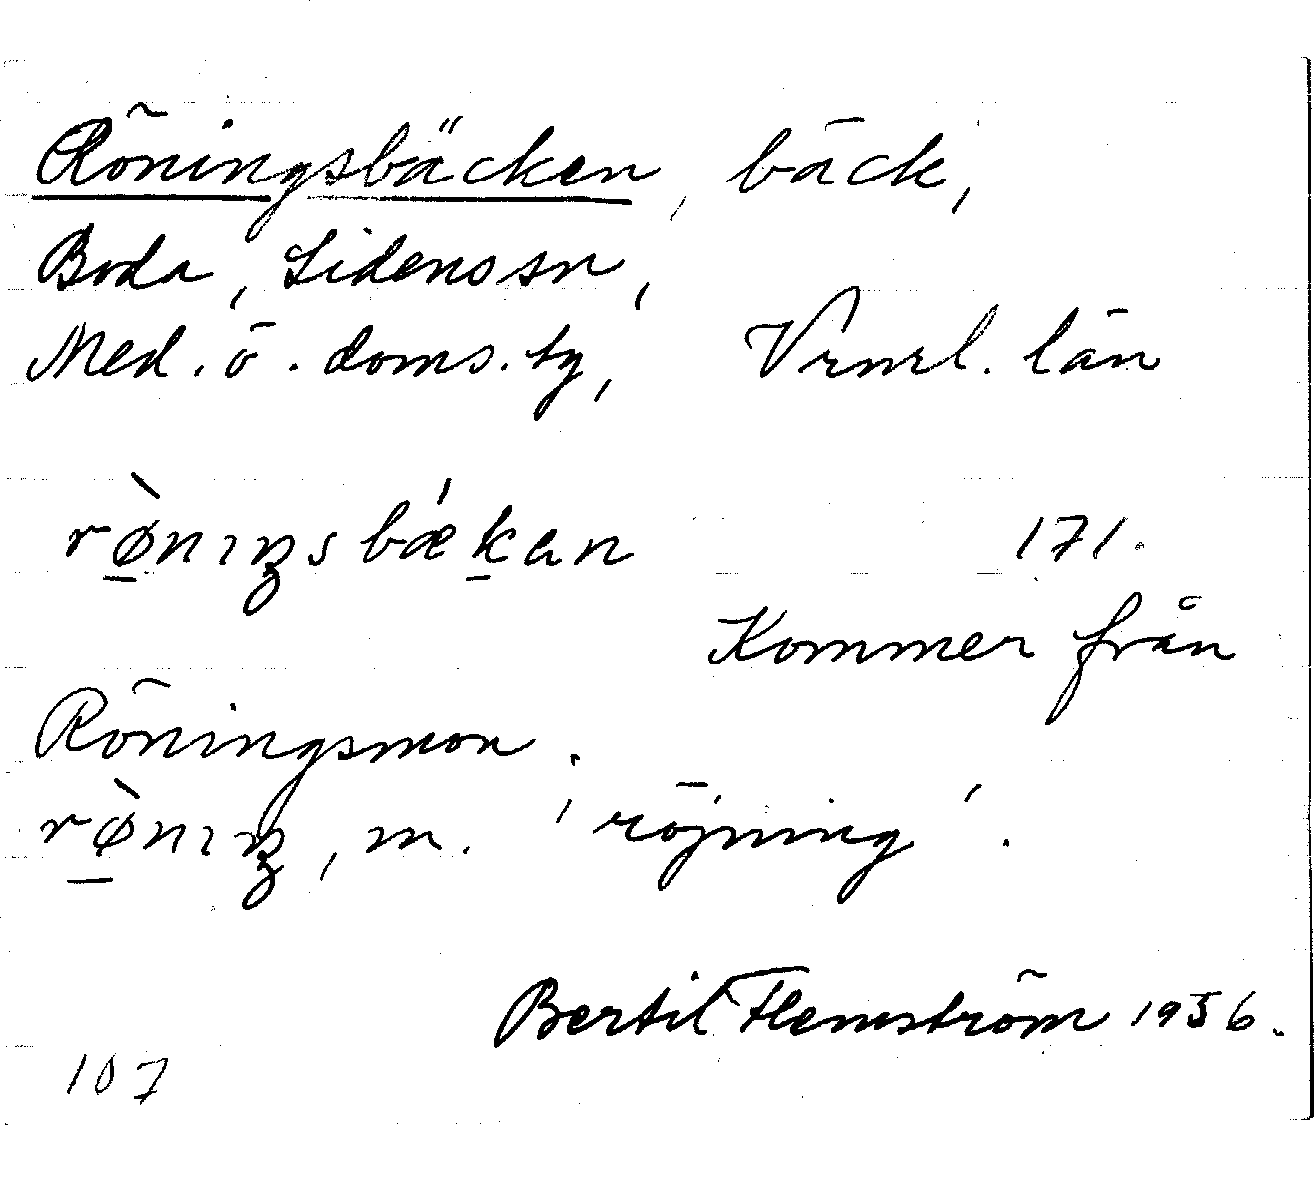 Röningsbäcken, bäck,
Boda, Lidens sn,
Med. ö. doms. hg, Vrnrl. län
rø̀nıŋsbǽkan 171.
Kommer från
Röningsmon.
rø̀nıŋ, m. 'röjning'.
Bertil Flemström 1956.
107